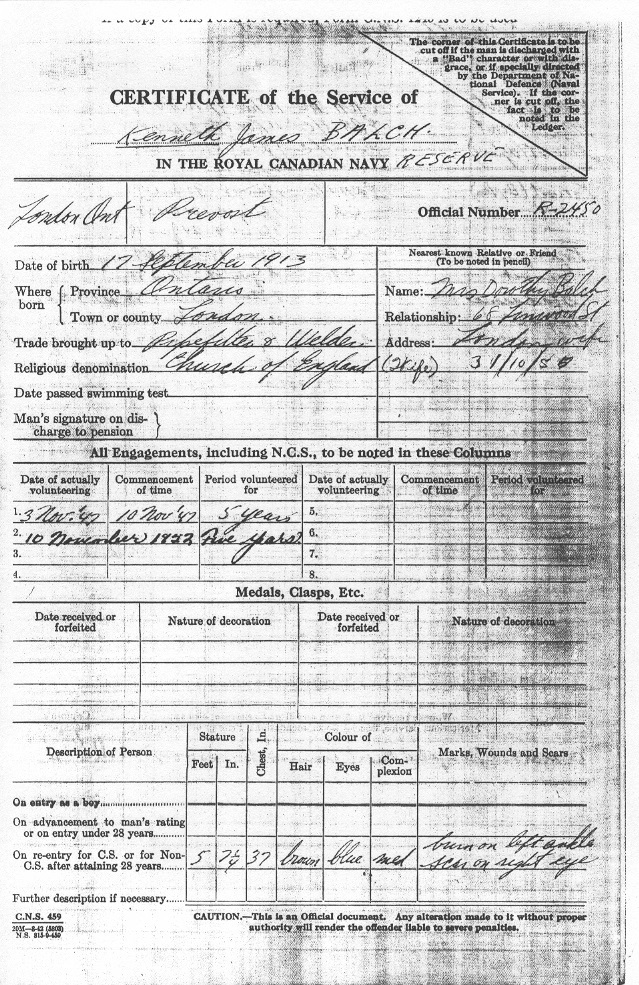 If a copy of this Form is required, Form C.N.S. 1243 is to be used
The corner of this Certificate is to be
cut off if the man is discharged with
a "Bad" character or with dis-
grace, or if specially directed
by the Department of Na-
tional Defence (Naval
Service). If the cor-
ner is cut off, the
fact is to be
noted in the
Ledger.
CERTIFICATE of the Service of
Kenneth James BALCH.
IN THE ROYAL CANADIAN NAVY RESERVE
London Ont Prevost Official Number R-2450
Date of birth 17 September 1913
Nearest known Relative or Friend
(To be noted in pencil)
Where born { Province Ontario
Town or county London.
Name: Mrs Dorothy Balch
Relationship: 68 St
Trade brought up to Pipefitter & Welder
Address: London wife
Religious denomination Church of England
(Wife) 31/10/50
Date passed swimming test
Man's signature on dis-
charge to pension }
All Engagements, including N.C.S., to be noted in these Columns
Date of actually volunteering Commencement of time Period volunteered for Date of actually volunteering Commencement of time Period volunteered for
1. 3 Nov. '47 10 Nov '47 5 years 5.
2. 10 November 1952 Five years 6.
3. 7.
4. 8.
Medals, Clasps, Etc.
Date received or forfeited Nature of decoration Date received or forfeited Nature of decoration
Description of Person Stature Chest, In. Colour of Marks, Wounds and Scars
Feet In. Hair Eyes Com-plexion
On entry as a boy
On advancement to man's rating
or on entry under 28 years
On re-entry for C.S. or for Non-
C.S. after attaining 28 years 5 7¼ 37 brown blue med burn on left ankle
scar on right eye
Further description if necessary
C.N.S. 459
20M—8-42 (5808)
N.S. 815-9-459
CAUTION.—This is an Official document. Any alteration made to it without proper
authority will render the offender liable to severe penalties.